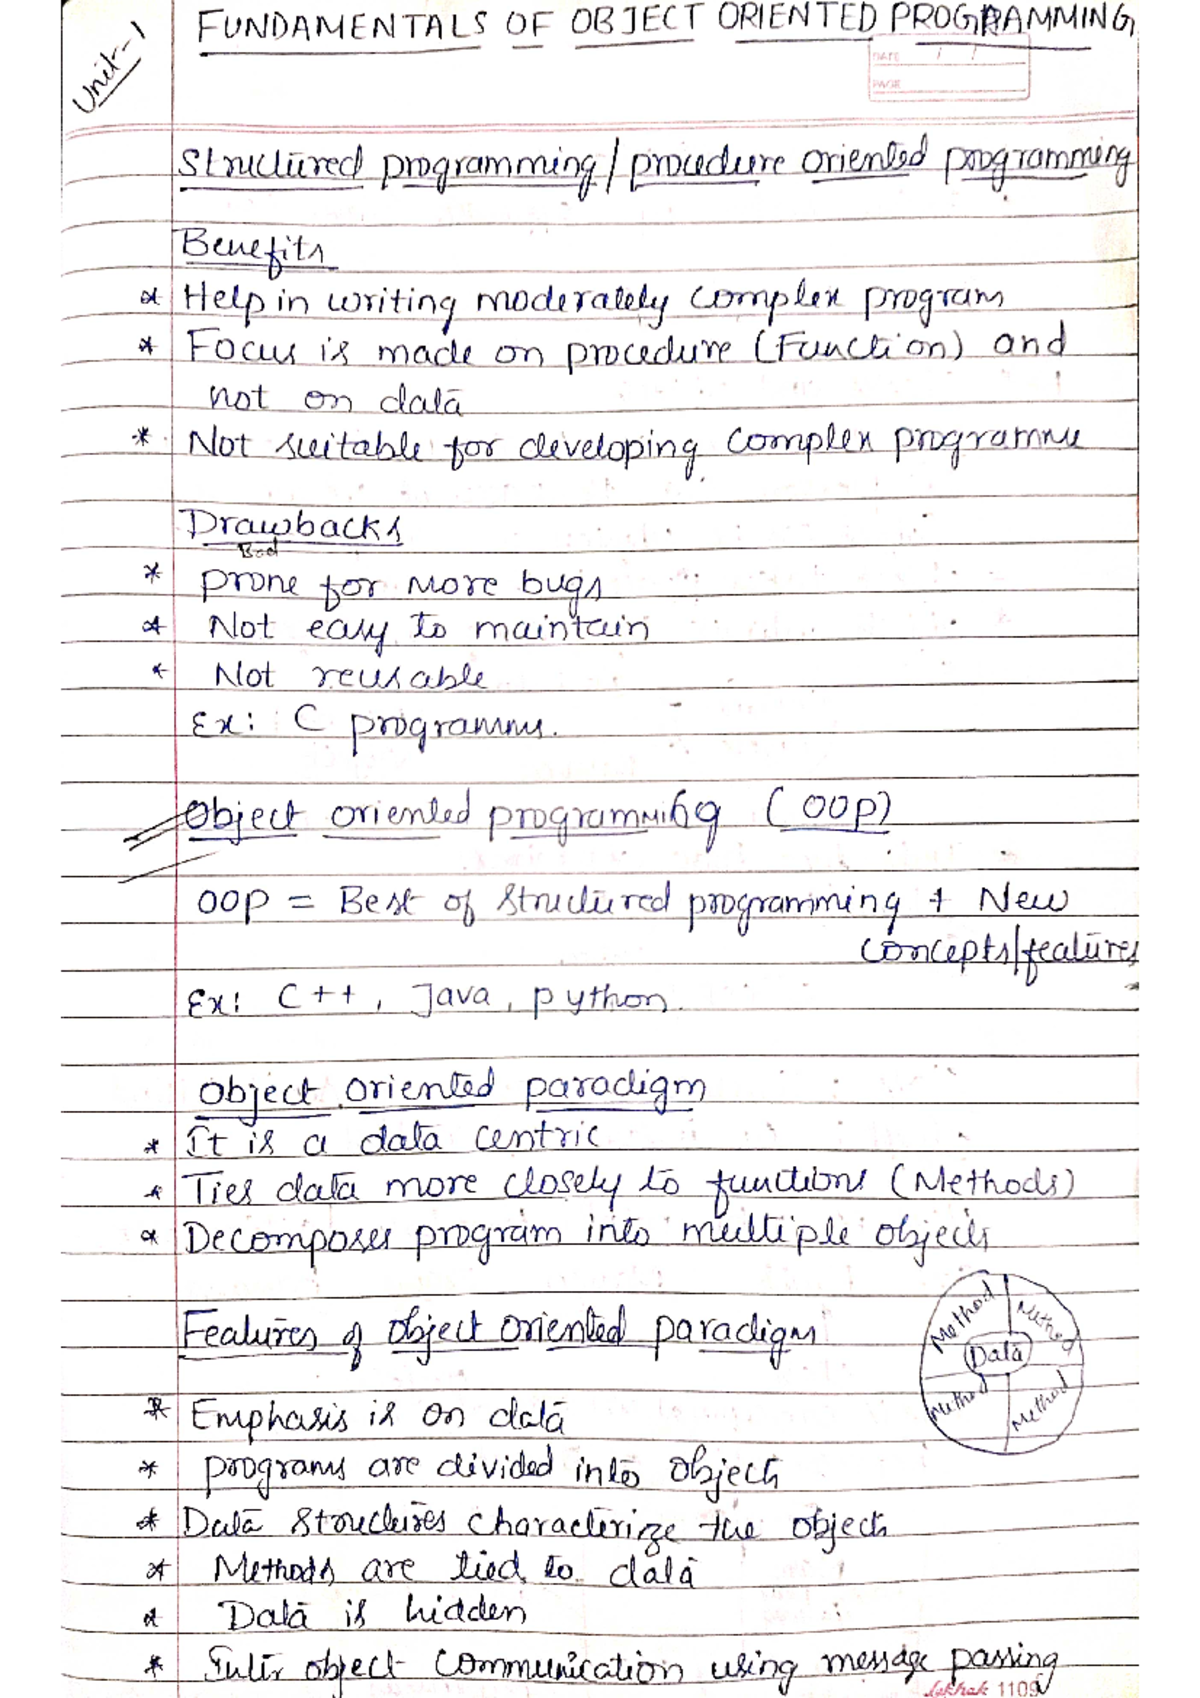 Unit-1
FUNDAMENTALS OF OBJECT ORIENTED PROGRAMMING
DATE / /
PAGE
Structured programming/procedure oriented programming
Benefits
* Help in writing moderately complex program
* Focus is made on procedure (Function) and
not on data
* Not suitable for developing complex programme
Drawbacks
Bad
* prone for more bugs
* Not easy to maintain
* Not reusable
Ex: C programms.
Object oriented programming (OOP)
OOP = Best of structured programming + New
concepts/features
Ex: C++, Java, python.
Object oriented paradigm
* It is a data centric
* Ties data more closely to functions (Methods)
* Decomposes program into multiple objects
Features of object oriented paradigm
Method
Method
Data
Method
Method
* Emphasis is on data
* programs are divided into objects
* Data structures characterize the objects
* Methods are tied to data
* Data is hidden
* Inter object communication using message passing
Lekhak 1109